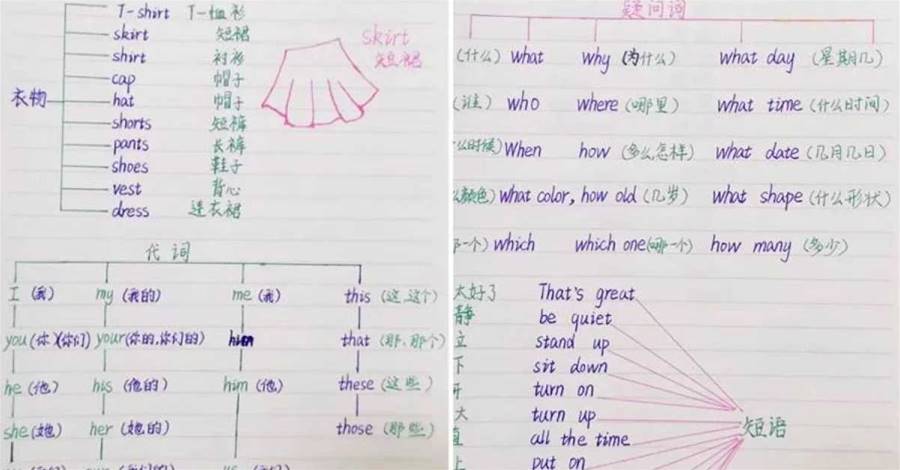 T-shirt T-恤衫
skirt 短裙
shirt 衬衫
cap 帽子
衣物 hat 帽子
shorts 短裤
pants 长裤
shoes 鞋子
vest 背心
dress 连衣裙
skirt
短裙
代词
I (我) my (我的) me (我) this (这,这个)
you (你)(你们) your (你的,你们的) that (那,那个)
he (他) his (他的) him (他) these (这些)
she (她) her (她的) those (那些)
疑问词
(什么) what why (为什么) what day (星期几)
(谁) who where (哪里) what time (什么时间)
么时候) when how (多么怎样) what date (几月几日)
颜色) what color, how old (几岁) what shape (什么形状)
一个) which which one (哪一个) how many (多少)
太好了 That's great
静 be quiet
立 stand up
下 sit down
开 turn on
大 turn up
直 all the time
上 put on
短语